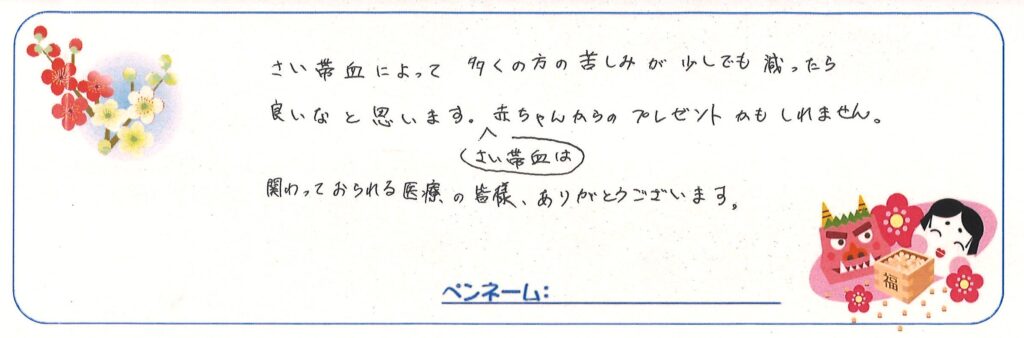 さい帯血によって 多くの方の苦しみが少しでも減ったら
良いなと思います。赤ちゃんからのプレゼントかもしれません。
さい帯血は
関わっておられる医療の皆様、ありがとうございます。
福
ペンネーム: